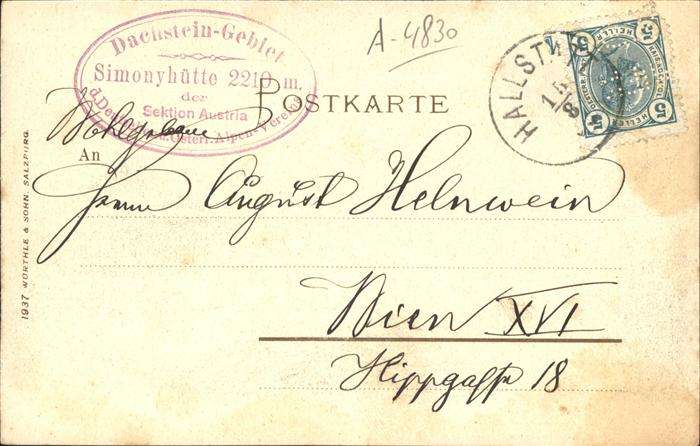 A-4830
Dachstein-Gebiet
Simonyhütte 2210 m.
der
Sektion Austria
d. Deutsch. u. Österr. Alpen-Vereins
POSTKARTE
HALLSTATT
5 HELLER 5
Wohlgeboren
An
Herrn August Helnwein
Wien XVI
Hippgasse 18
1937 WÜRTHLE & SOHN, SALZBURG.